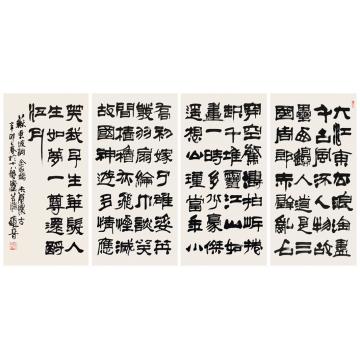 大江東去浪淘盡
千古風流人物故
壘西邊人道是三
國周郎赤壁亂石
穿空驚濤拍岸捲
起千堆雪江山如
畫一時多少豪傑
遙想公瑾當年小
喬初嫁了雄姿英
發羽扇綸巾談笑
間檣櫓灰飛煙滅
故國神遊多情應
笑我早生華髮人
生如夢一尊還酹
江月
蘇東坡詞念奴嬌赤壁懷古
辛卯